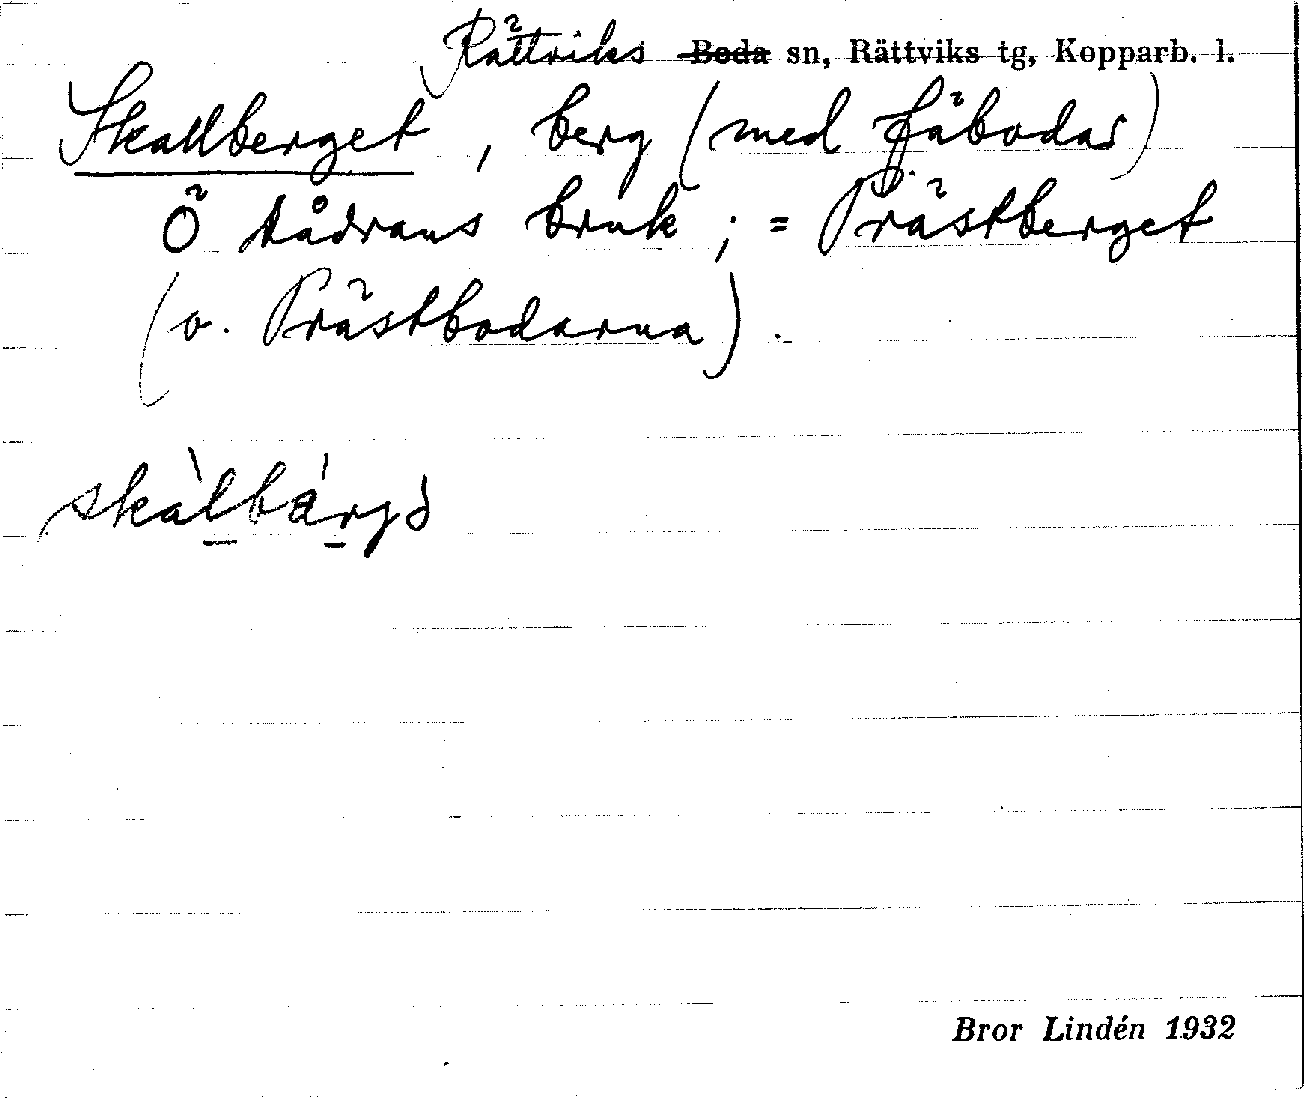 Rättviks ~~Boda~~ sn, Rättviks tg, Kopparb. l.
Skallberget, berg (med fäbodar)
Ö Dådrans bruk; = Prästberget
(o. Prästbodarna).
skàlbárgə̀
Bror Lindén 1932